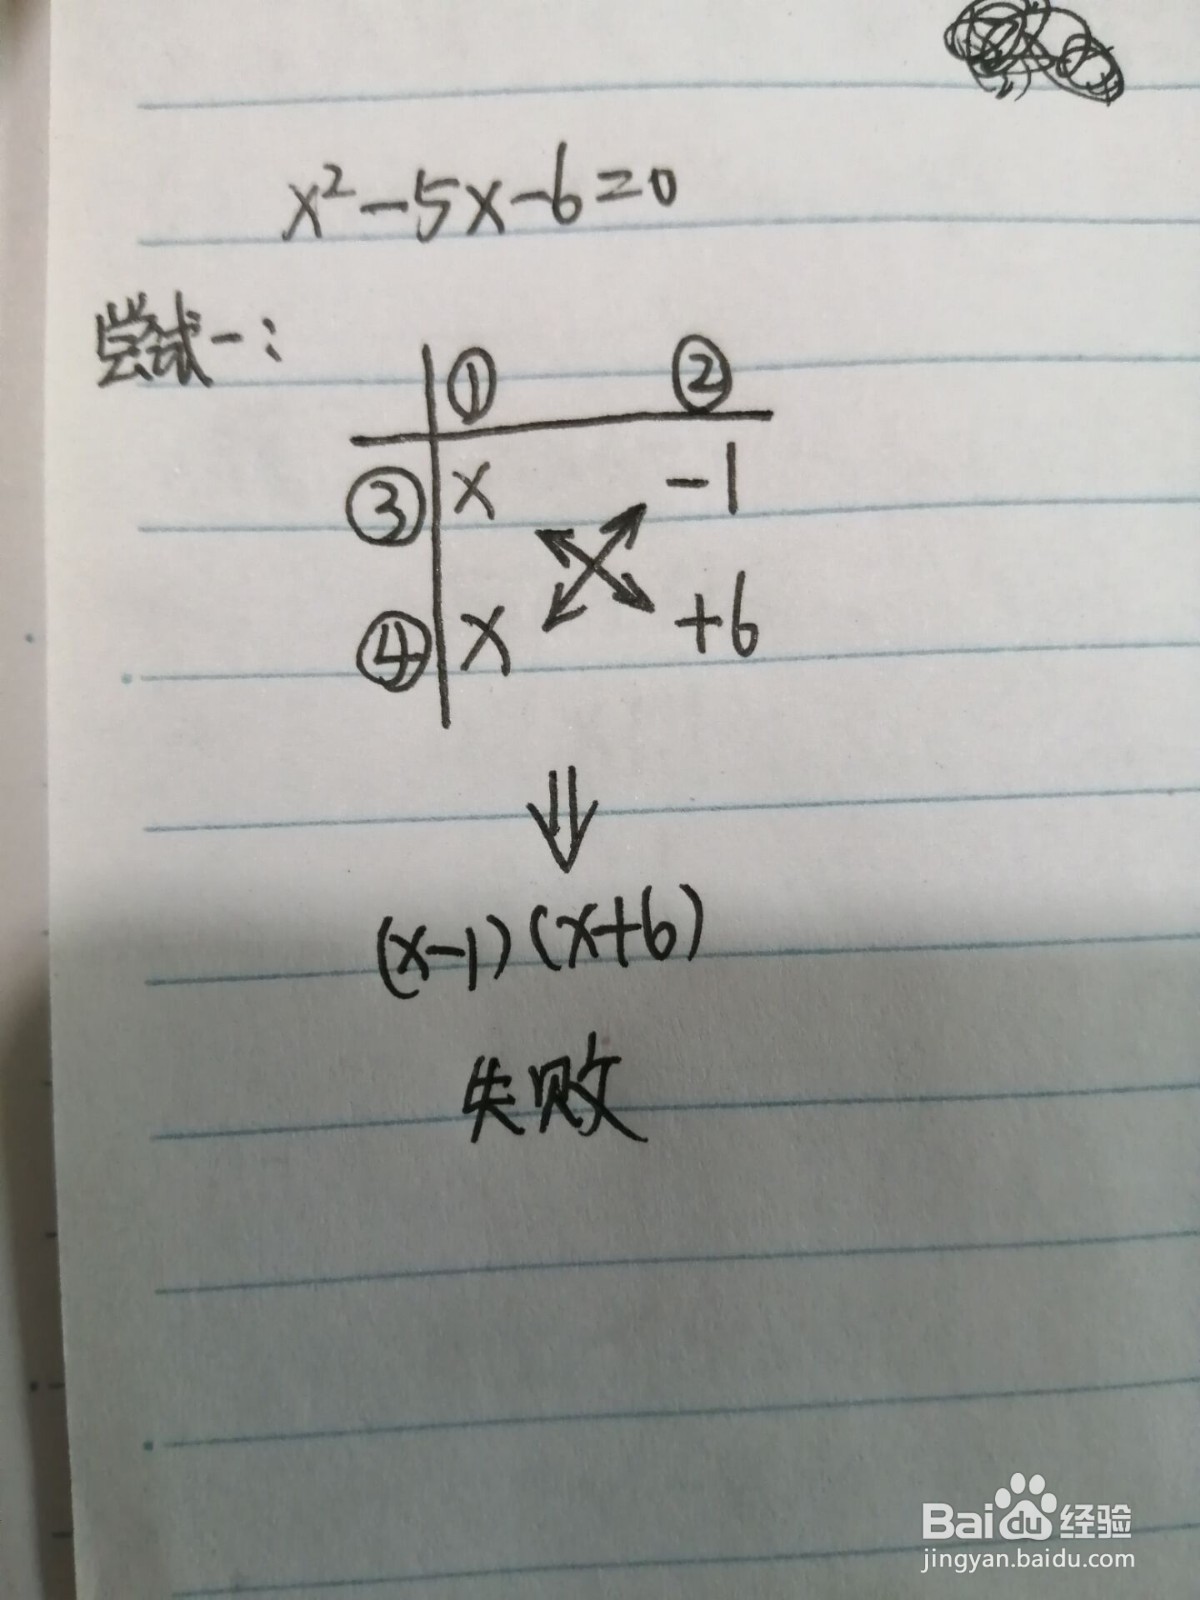 x²-5x-6=0
尝试一：
① ②
③ x -1
④ x +6
⇓
(x-1)(x+6)
失败
Baidu 经验
jingyan.baidu.com